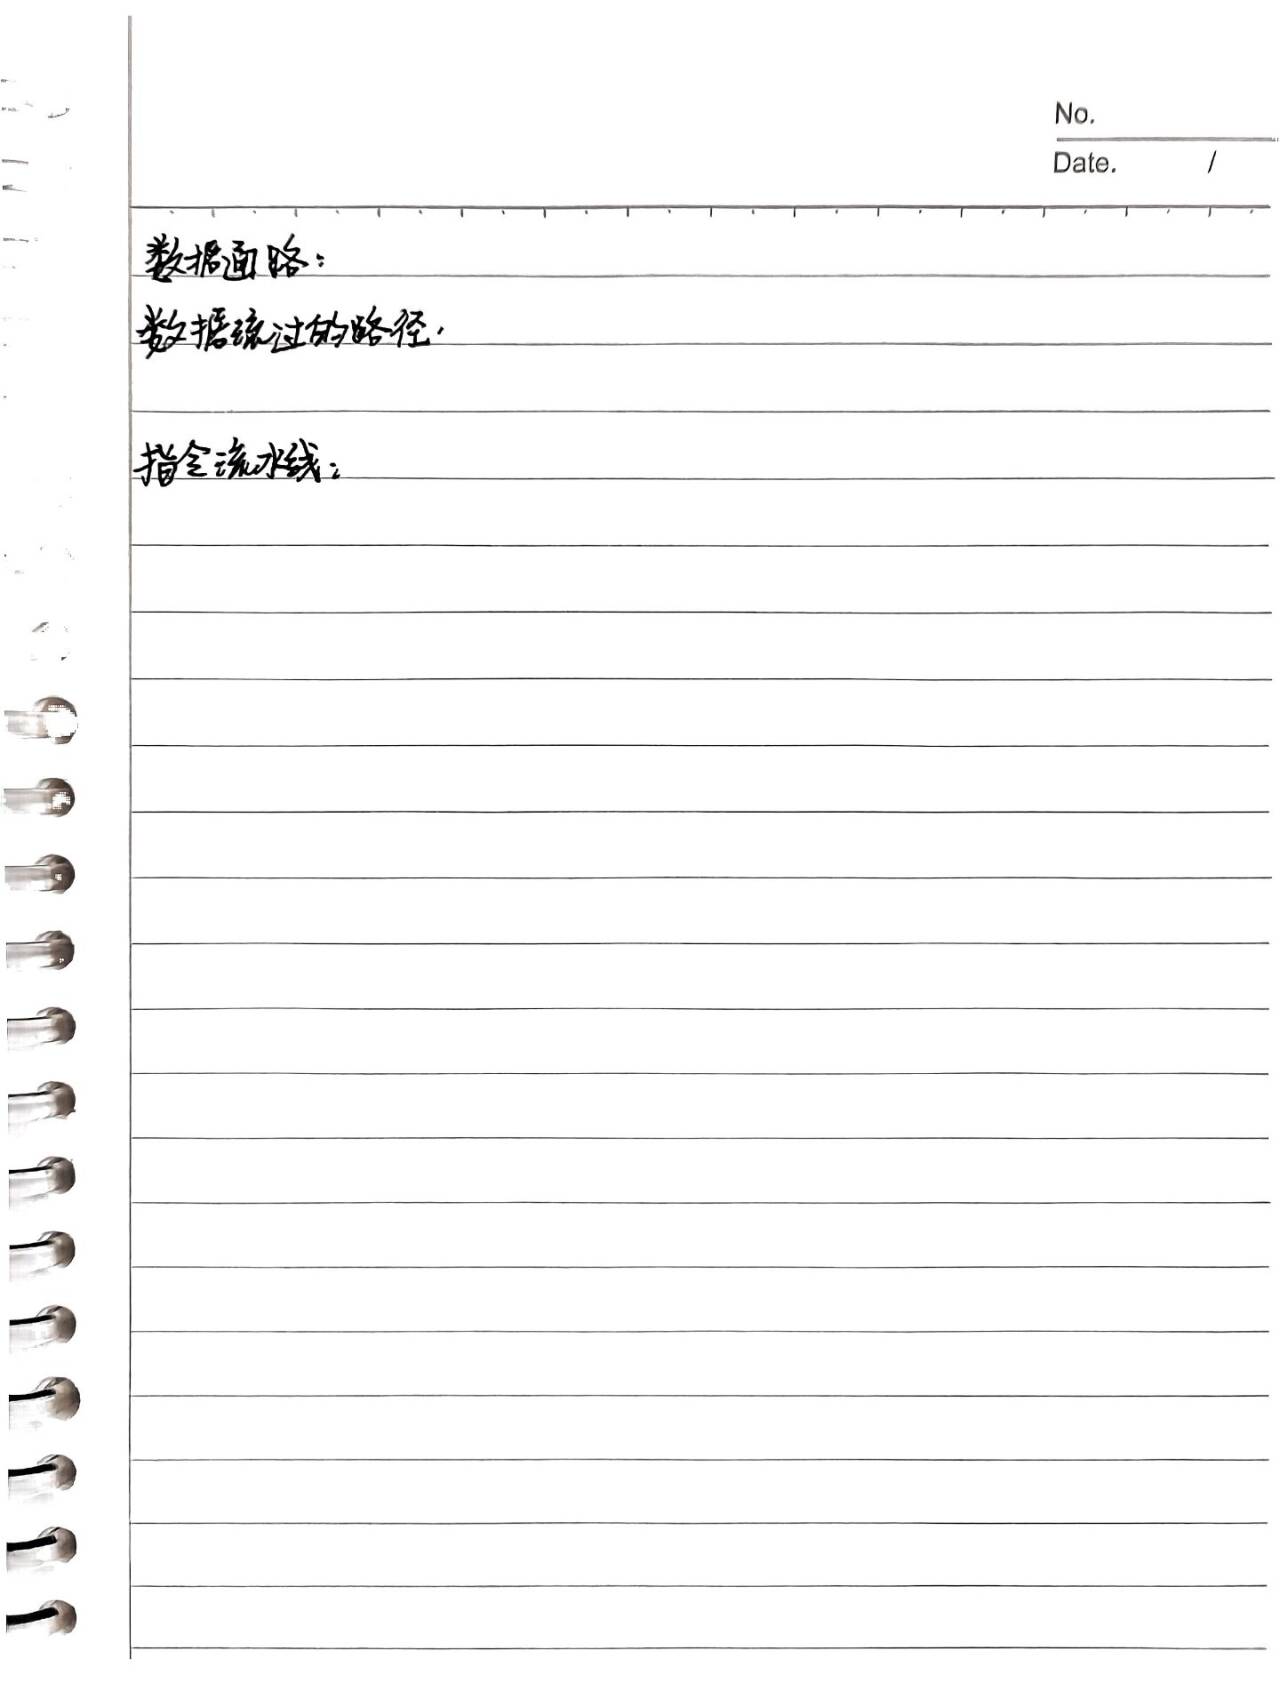 No.
Date. /
数据通路：
数据流过的路径.
指令流水线：